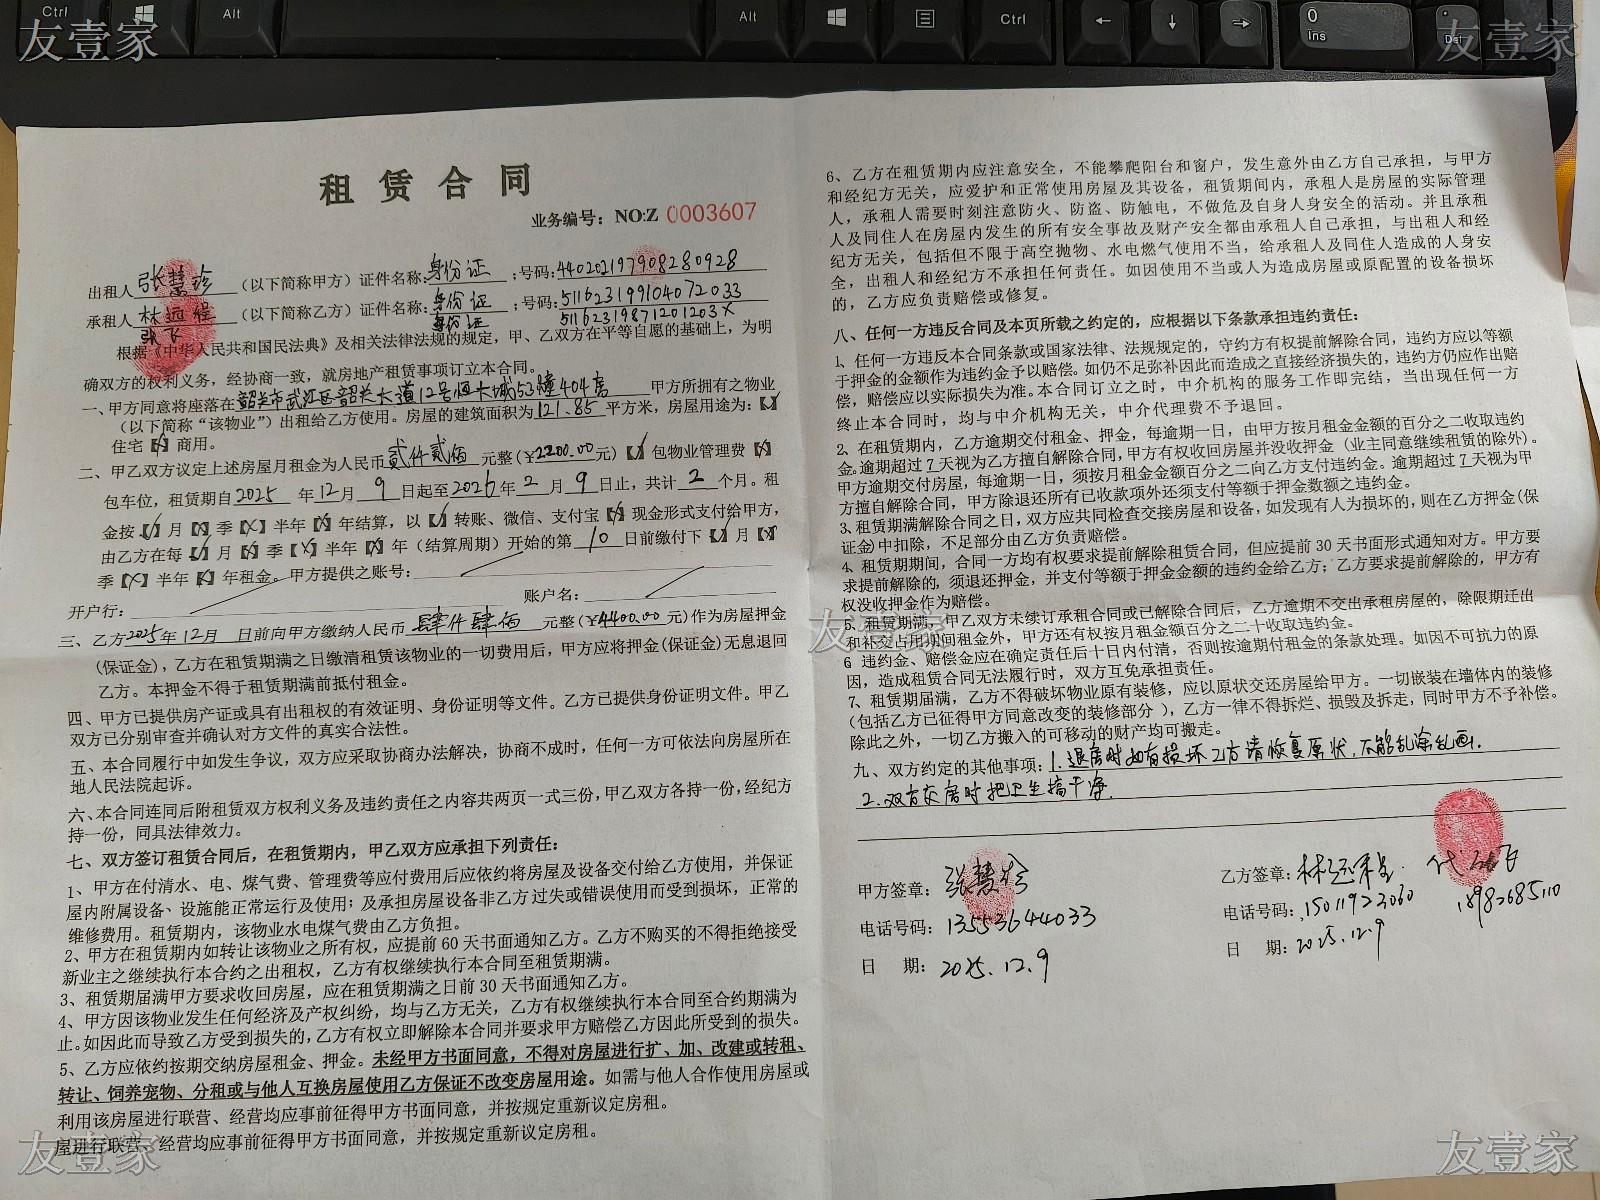 Ctrl
Alt
Alt
Ctrl
0
Ins
Del
友壹家
友壹家
租赁合同
业务编号：NO:Z 0003607
出租人张慧珍（以下简称甲方）证件名称:身份证；号码:440202197908280928
承租人林远程（以下简称乙方）证件名称:身份证；号码:511623199104072033
张飞 身份证 51162319871201203X
根据《中华人民共和国民法典》及相关法律法规的规定，甲、乙双方在平等自愿的基础上，为明
确双方的权利义务，经协商一致，就房地产租赁事项订立本合同。
一、甲方同意将座落在韶关市武江区韶关大道12号恒大城53幢404房 甲方所拥有之物业
（以下简称“该物业”）出租给乙方使用。房屋的建筑面积为121.85平方米，房屋用途为:【√】
住宅【X】商用。
二、甲乙双方议定上述房屋月租金为人民币贰仟贰佰元整(¥2200.00元)【√】包物业管理费【X】
包车位，租赁期自2025年12月9日起至2026年2月9日止，共计2个月。租
金按【√】月【X】季【X】半年【X】年结算，以【√】转账、微信、支付宝【X】现金形式支付给甲方，
由乙方在每【√】月【X】季【X】半年【X】年（结算周期）开始的第10日前缴付下【√】月【X】
季【X】半年【X】年租金。甲方提供之账号：
开户行： 账户名：
三、乙方2025年12月 日前向甲方缴纳人民币肆仟肆佰元整(¥4400.00元)作为房屋押金
(保证金)，乙方在租赁期满之日缴清租赁该物业的一切费用后，甲方应将押金(保证金)无息退回
乙方。本押金不得于租赁期满前抵付租金。
四、甲方已提供房产证或具有出租权的有效证明、身份证明等文件。乙方已提供身份证明文件。甲乙
双方已分别审查并确认对方文件的真实合法性。
五、本合同履行中如发生争议，双方应采取协商办法解决，协商不成时，任何一方可依法向房屋所在
地人民法院起诉。
六、本合同连同后附租赁双方权利义务及违约责任之内容共两页一式三份，甲乙双方各持一份，经纪方
持一份，同具法律效力。
七、双方签订租赁合同后，在租赁期内，甲乙双方应承担下列责任：
1、甲方在付清水、电、煤气费、管理费等应付费用后应依约将房屋及设备交付给乙方使用，并保证
屋内附属设备、设施能正常运行及使用；及承担房屋设备非乙方过失或错误使用而受到损坏，正常的
维修费用。租赁期内，该物业水电煤气费由乙方负担。
2、甲方在租赁期内如转让该物业之所有权，应提前60天书面通知乙方。乙方不购买的不得拒绝接受
新业主之继续执行本合约之出租权，乙方有权继续执行本合同至租赁期满。
3、租赁期届满甲方要求收回房屋，应在租赁期满之日前30天书面通知乙方。
4、甲方因该物业发生任何经济及产权纠纷，均与乙方无关，乙方有权继续执行本合同至合约期满为
止。如因此而导致乙方受到损失的，乙方有权立即解除本合同并要求甲方赔偿乙方因此所受到的损失。
5、乙方应依约按期交纳房屋租金、押金。未经甲方书面同意，不得对房屋进行扩、加、改建或转租、
转让、饲养宠物、分租或与他人互换房屋使用乙方保证不改变房屋用途。如需与他人合作使用房屋或
利用该房屋进行联营、经营均应事前征得甲方书面同意，并按规定重新议定房租。
屋进行联营、经营均应事前征得甲方书面同意，并按规定重新议定房租。
6、乙方在租赁期内应注意安全，不能攀爬阳台和窗户，发生意外由乙方自己承担，与甲方
和经纪方无关，应爱护和正常使用房屋及其设备，租赁期间内，承租人是房屋的实际管理
人，承租人需要时刻注意防火、防盗、防触电，不做危及自身人身安全的活动。并且承租
人及同住人在房屋内发生的所有安全事故及财产安全都由承租人自己承担，与出租人和经
纪方无关，包括但不限于高空抛物、水电燃气使用不当，给承租人及同住人造成的人身安
全，出租人和经纪方不承担任何责任。如因使用不当或人为造成房屋或原配置的设备损坏
的，乙方应负责赔偿或修复。
八、任何一方违反合同及本页所载之约定的，应根据以下条款承担违约责任：
1、任何一方违反本合同条款或国家法律、法规规定的，守约方有权提前解除合同，违约方应以等额
于押金的金额作为违约金予以赔偿。如仍不足弥补因此而造成之直接经济损失的，违约方仍应作出赔
偿，赔偿应以实际损失为准。本合同订立之时，中介机构的服务工作即完结，当出现任何一方
终止本合同时，均与中介机构无关，中介代理费不予退回。
2、在租赁期内，乙方逾期交付租金、押金，每逾期一日，由甲方按月租金金额的百分之二收取违约
金。逾期超过7天视为乙方擅自解除合同，甲方有权收回房屋并没收押金（业主同意继续租赁的除外）。
甲方逾期交付房屋，每逾期一日，须按月租金金额百分之二向乙方支付违约金。逾期超过7天视为甲
方擅自解除合同，甲方除退还所有已收款项外还须支付等额于押金数额之违约金。
3、租赁期满解除合同之日，双方应共同检查交接房屋和设备，如发现有人为损坏的，则在乙方押金(保
证金)中扣除，不足部分由乙方负责赔偿。
4、租赁期期间，合同一方均有权要求提前解除租赁合同，但应提前30天书面形式通知对方。甲方要
求提前解除的，须退还押金，并支付等额于押金金额的违约金给乙方；乙方要求提前解除的，甲方有
权没收押金作为赔偿。
5、租赁期满，甲乙双方未续订承租合同或已解除合同后，乙方逾期不交出承租房屋的，除限期迁出
和补交占用期间租金外，甲方还有权按月租金额百分之二十收取违约金。
友壹家
6 违约金、赔偿金应在确定责任后十日内付清，否则按逾期付租金的条款处理。如因不可抗力的原
因，造成租赁合同无法履行时，双方互免承担责任。
7、租赁期届满，乙方不得破坏物业原有装修，应以原状交还房屋给甲方。一切嵌装在墙体内的装修
（包括乙方已征得甲方同意改变的装修部分），乙方一律不得拆烂、损毁及拆走，同时甲方不予补偿。
除此之外，一切乙方搬入的可移动的财产均可搬走。
九、双方约定的其他事项：1.退房时如有损坏乙方请恢复原状,不能乱涂乱画.
2.双方交房时把卫生搞干净.
甲方签章：张慧珍
电话号码：13553644033
日 期：2025.12.9
乙方签章：林远程. 代 张飞
电话号码：15011923060 18982685110
日 期：2025.12.9
友壹家
友壹家